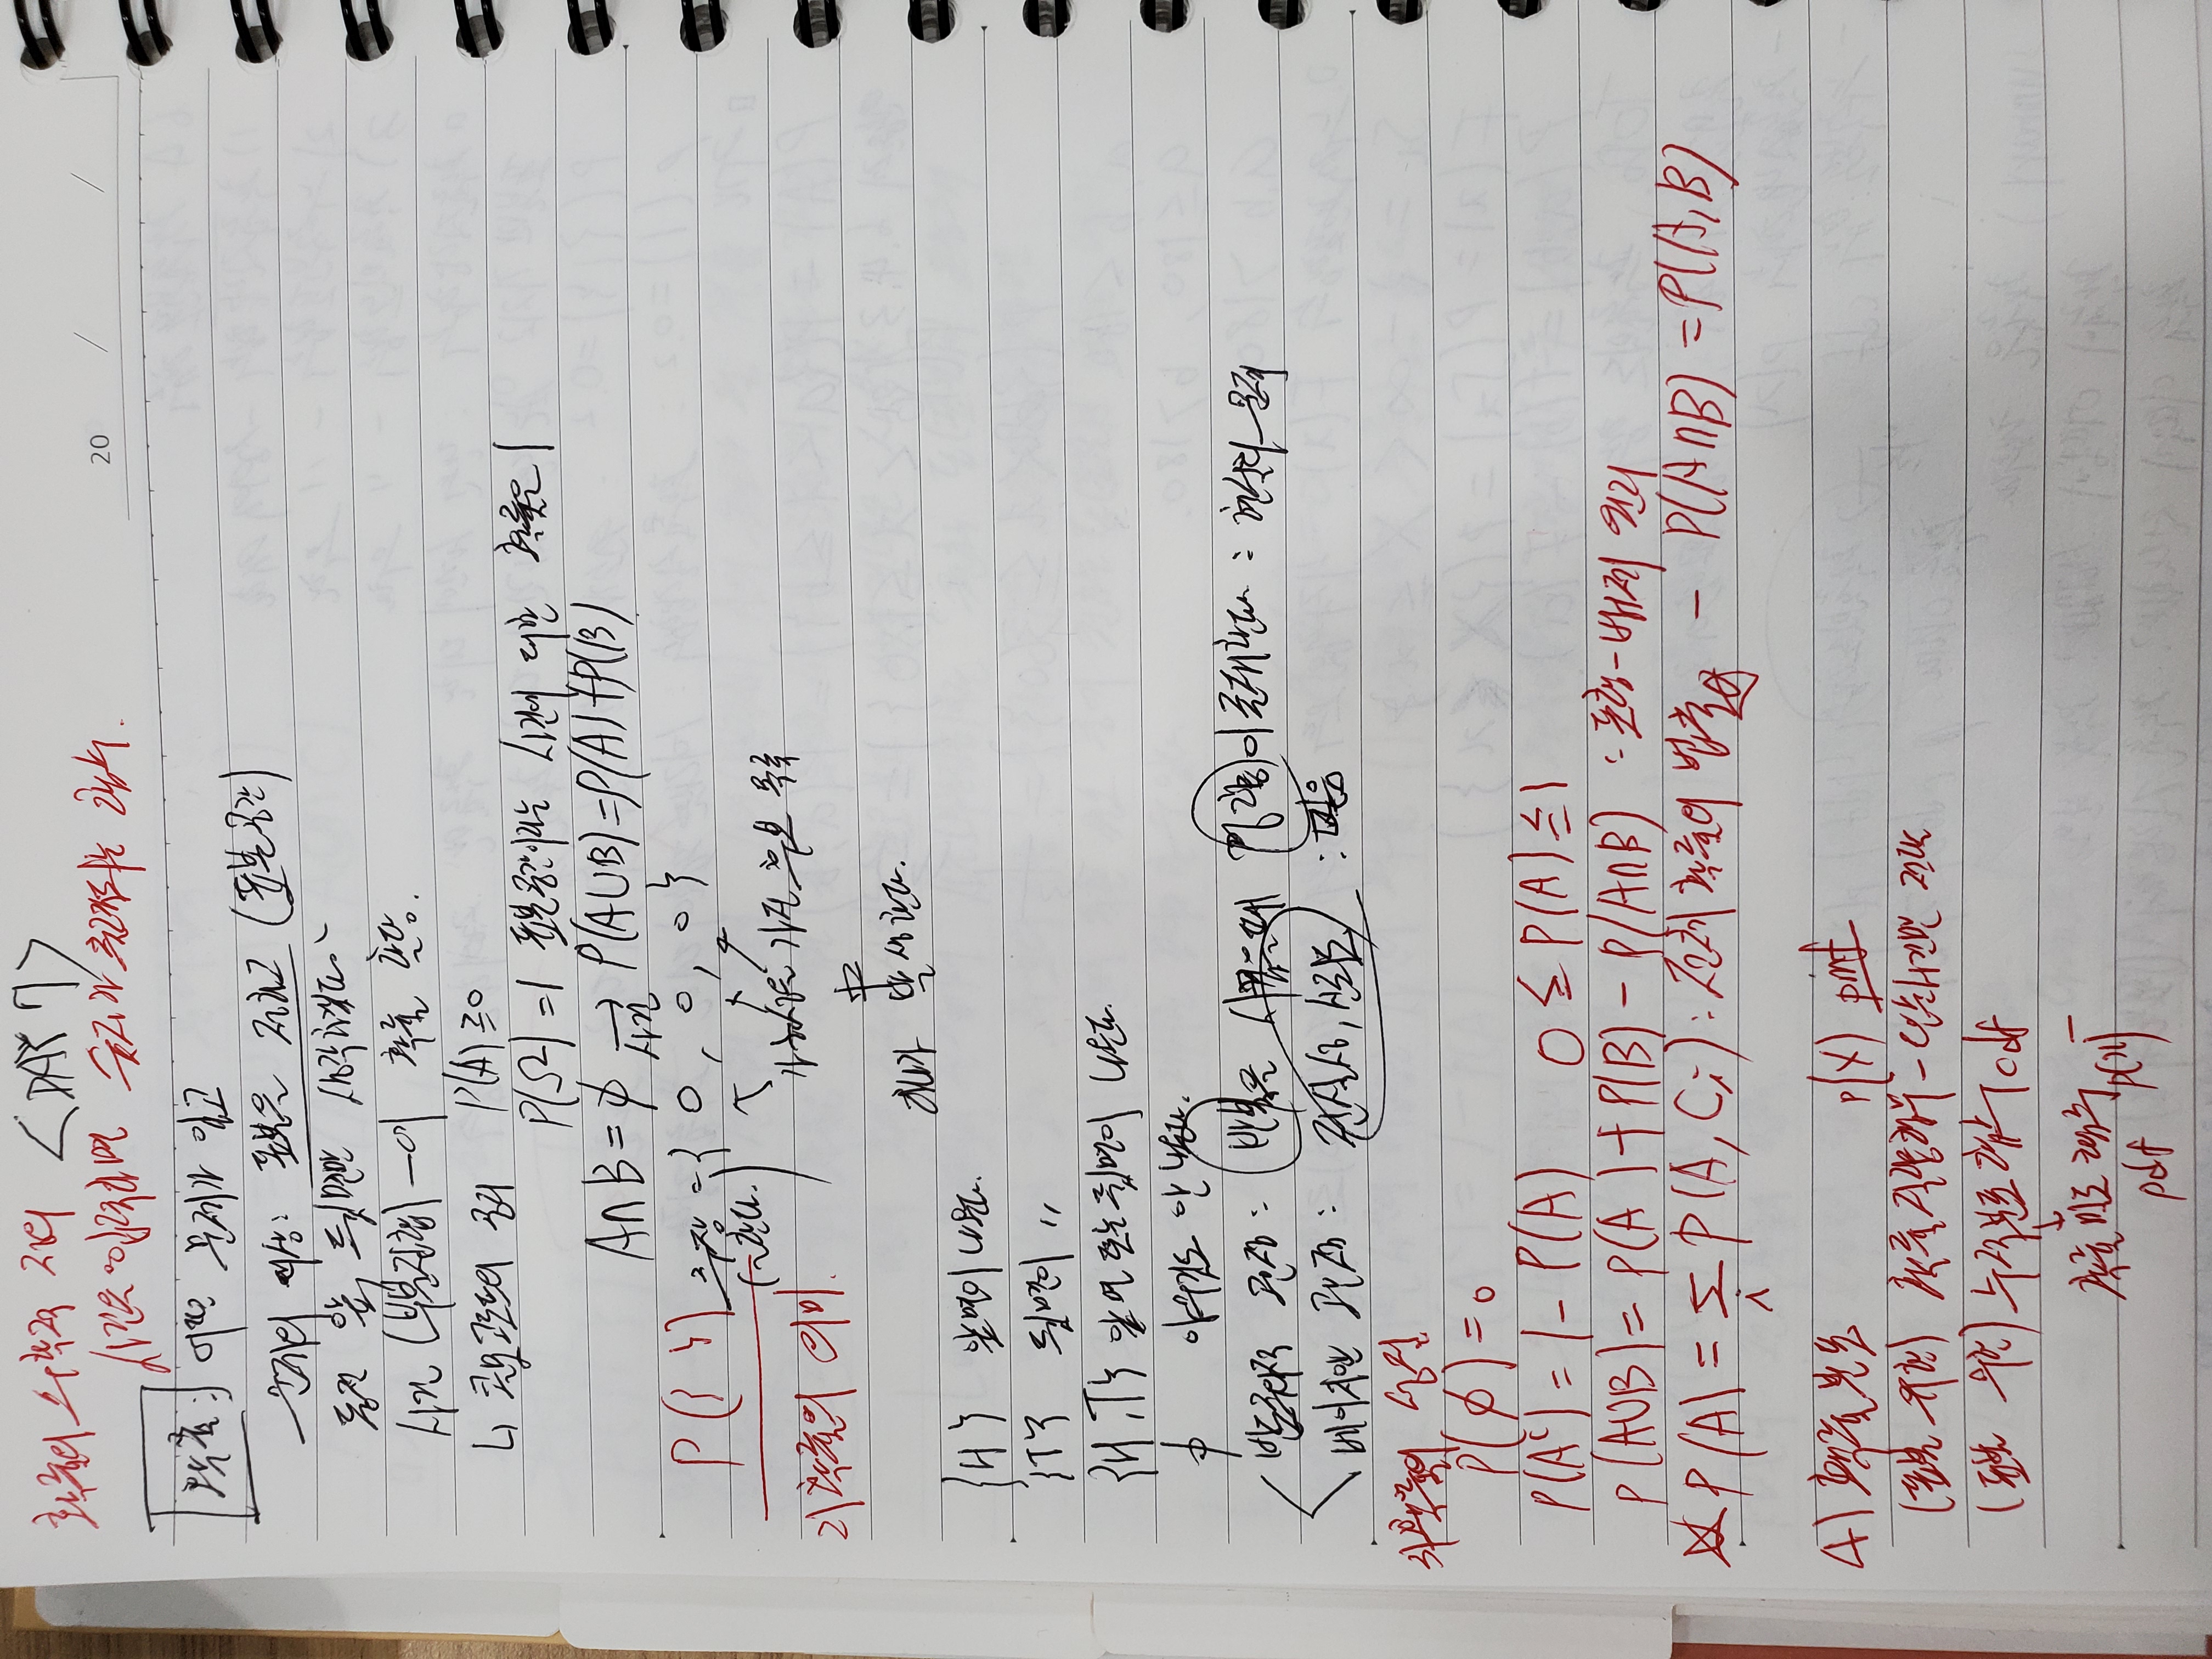 확률의 수학적 정의 <DAY 7>
사건을 입력하면 숫자가 출력되는 함수.
20 / /
확률 : 어떤 문제가 있고
문제의 대상: 표본을 정하고 (표본공간)
동전 앞, 뒷면만 생각하겠다.
사건 (부분집합) - 에 확률 할당.
↳ 콜모고로프의 공리 P(A) ≥ 0
P(Ω) = 1 표본공간이라는 사건에 대한 확률은 1
A∩B = ∅ → P(A∪B) = P(A) + P(B)
사건
P({ }) 주장 = { 0, 0, 0 }
(~한다.)
가능성을 가진 후보 목록
2) 확률의 의미.
中
하나가 발생한다.
{H} 앞면이 나온다.
{T} 뒷면이 〃
{H, T} 앞면 또는 뒷면이 나온다.
∅ 아무것도 안 나온다.
빈도주의적 관점 : 반복을 했을때 경향이 존재한다 : 현실의 문제
베이지안 관점 : 진실성, 신뢰도 : 믿음
3) 확률의 성질
P(∅) = 0
P(Aᶜ) = 1 - P(A) 0 ≤ P(A) ≤ 1
P(A∪B) = P(A) + P(B) - P(A∩B) : 포함-배제 원리
☆ P(A) = Σ P(A, Ci) : 전체 확률의 법칙 - P(A∩B) = P(A, B)
i
4) 확률분포 p(x) pmf
(표본 유한) 확률질량함수 - 단순사건만 전달
(표본 무한) 누적분포함수 cdf
↓
확률 밀도 함수 p(x)
pdf